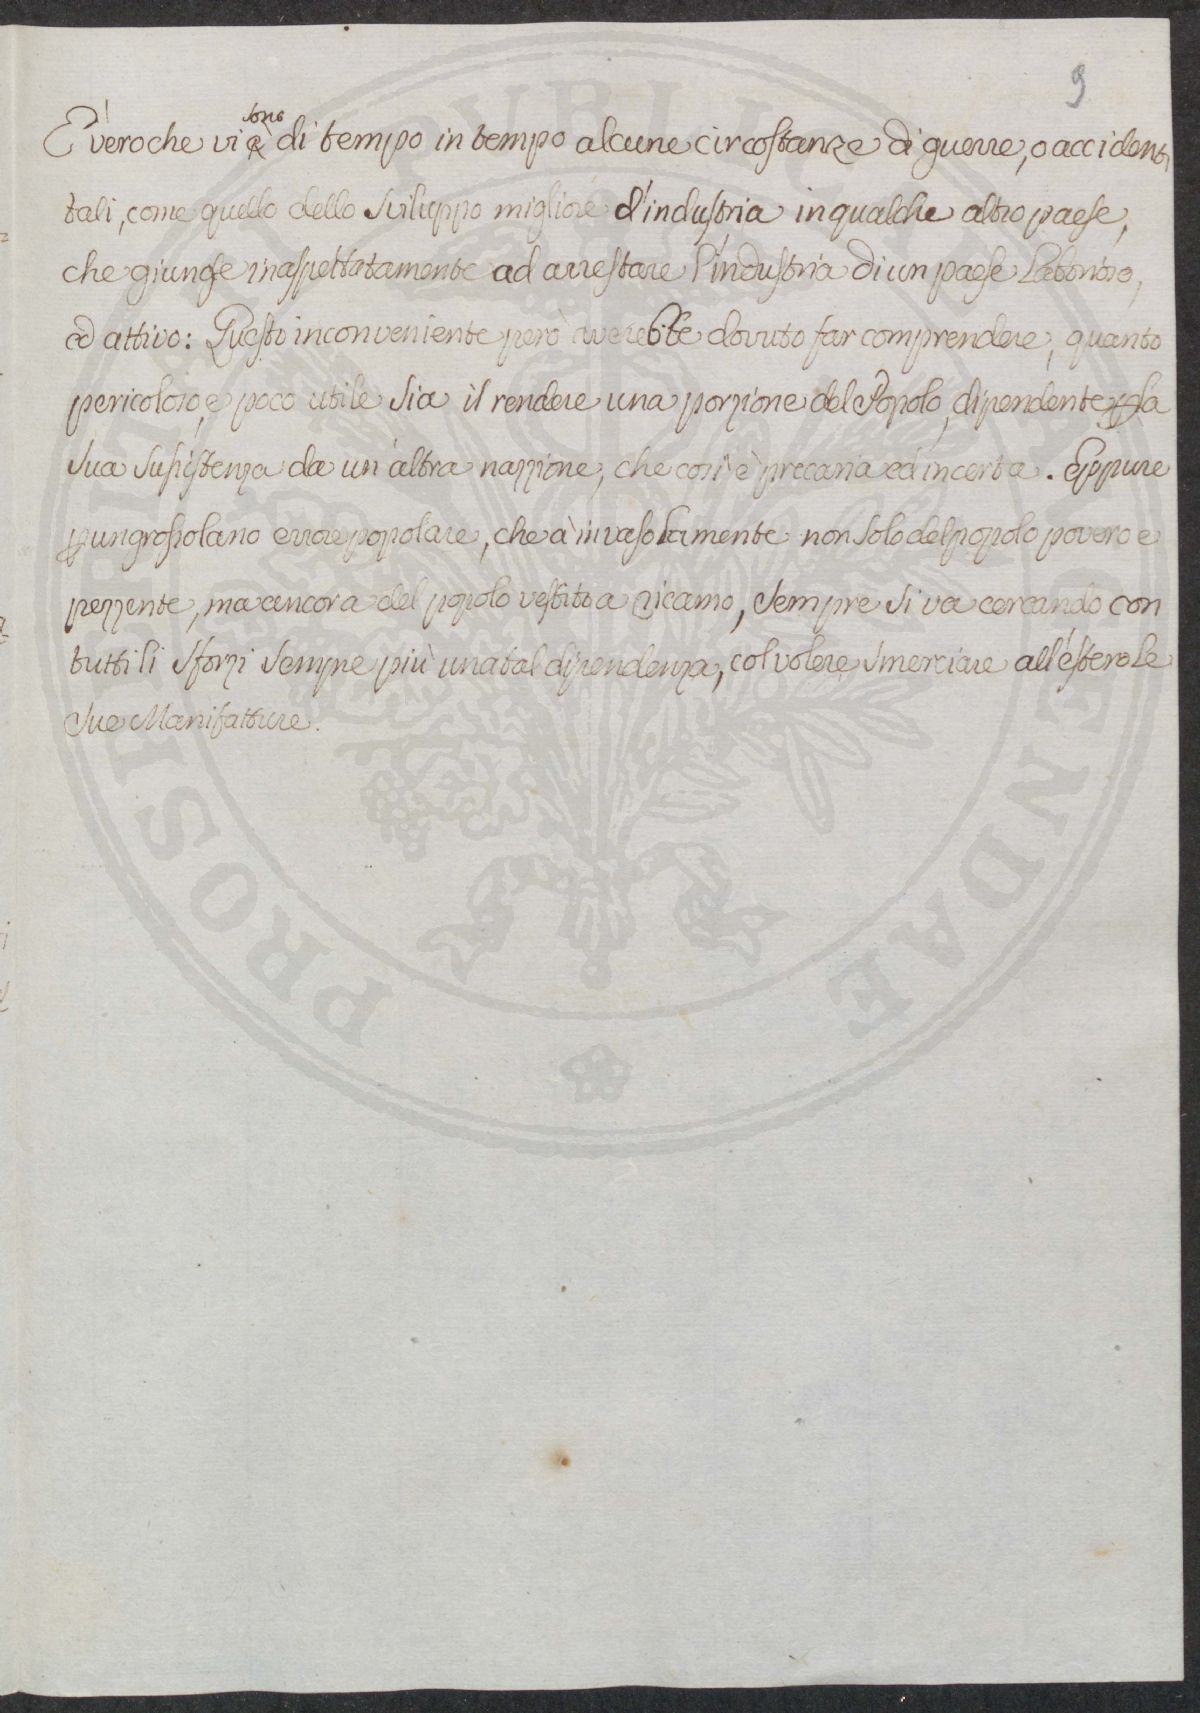 9
sono
E' vero che vi è di tempo in tempo alcune circostanze di guerre, o acciden
tali, come quello dello sviluppo migliore d'industria in qualche altro paese,
che giunge inaspettatamente ad arrestare l'industria di un paese Laborioso,
ed attivo: Questo inconveniente però averebbe dovuto far comprendere, quanto
pericoloso, e poco utile sia il rendere una porzione del Popolo, dipendente p la
sua susistenza da un'altra nazzione, che così è precaria ed incerta. Eppure
p un grossolano errore popolare, che à invaso la mente non solo del popolo povero e
pezzente, ma ancora del popolo vestito a ricamo, sempre si va cercando con
tutti li sforzi sempre più una tal dipendenza, col volere smerciare all'estero le
sue Manifatture.
PROSPERITATI PUBLICAE AUGENDAE